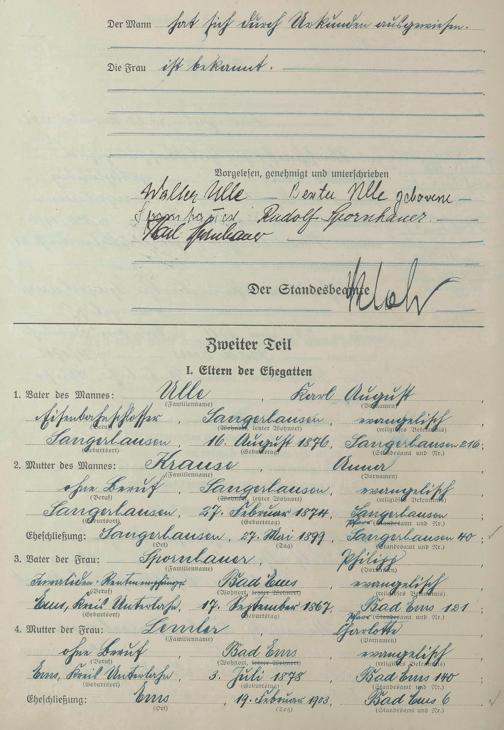 Der Mann hat sich durch Urkunden ausgewiesen.
Die Frau ist bekannt.
Vorgelesen, genehmigt und unterschrieben
Walter Ulle Berta Ulle geborene
Spornhauer Rudolf Spornhauer
Karl Spornhauer
Der Standesbeamte
Zweiter Teil
I. Eltern der Ehegatten
1. Vater des Mannes: Ulle Karl August
(Familienname) (Vornamen)
Eisenbahnschlosser, Sangerhausen, evangelisch
(Beruf) (Wohnort, letzter Wohnort) (religiöses Bekenntnis)
Sangerhausen, 16. August 1876, Sangerhausen 216;
(Geburtsort) (Geburtstag) (Standesamt und Nr.)
2. Mutter des Mannes: Krause Anna
(Familienname) (Vornamen)
ohne Beruf, Sangerhausen, evangelisch
(Beruf) (Wohnort, letzter Wohnort) (religiöses Bekenntnis)
Sangerhausen, 27. Februar 1874, Sangerhausen
(Geburtsort) (Geburtstag) (Standesamt und Nr.)
Eheschließung: Sangerhausen, 27. Mai 1899, Sangerhausen 40;
(Ort) (Tag) (Standesamt und Nr.)
3. Vater der Frau: Spornhauer, Philipp
(Familienname) (Vornamen)
Invaliden-Rentenempfänger, Bad Ems, evangelisch
(Beruf) (Wohnort, letzter Wohnort) (religiöses Bekenntnis)
Ems, Kreis Unterlahn, 17. September 1867, Bad Ems 121
(Geburtsort) (Geburtstag) (Standesamt und Nr.)
4. Mutter der Frau: Charlotte
(Familienname) (Vornamen)
ohne Beruf, Bad Ems, evangelisch
(Beruf) (Wohnort, letzter Wohnort) (religiöses Bekenntnis)
Ems, Kreis Unterlahn, 3. Juli 1878, Bad Ems 140
(Geburtsort) (Geburtstag) (Standesamt und Nr.)
Eheschließung: Ems, 19. Februar 1903, Bad Ems 6
(Ort) (Tag) (Standesamt und Nr.)